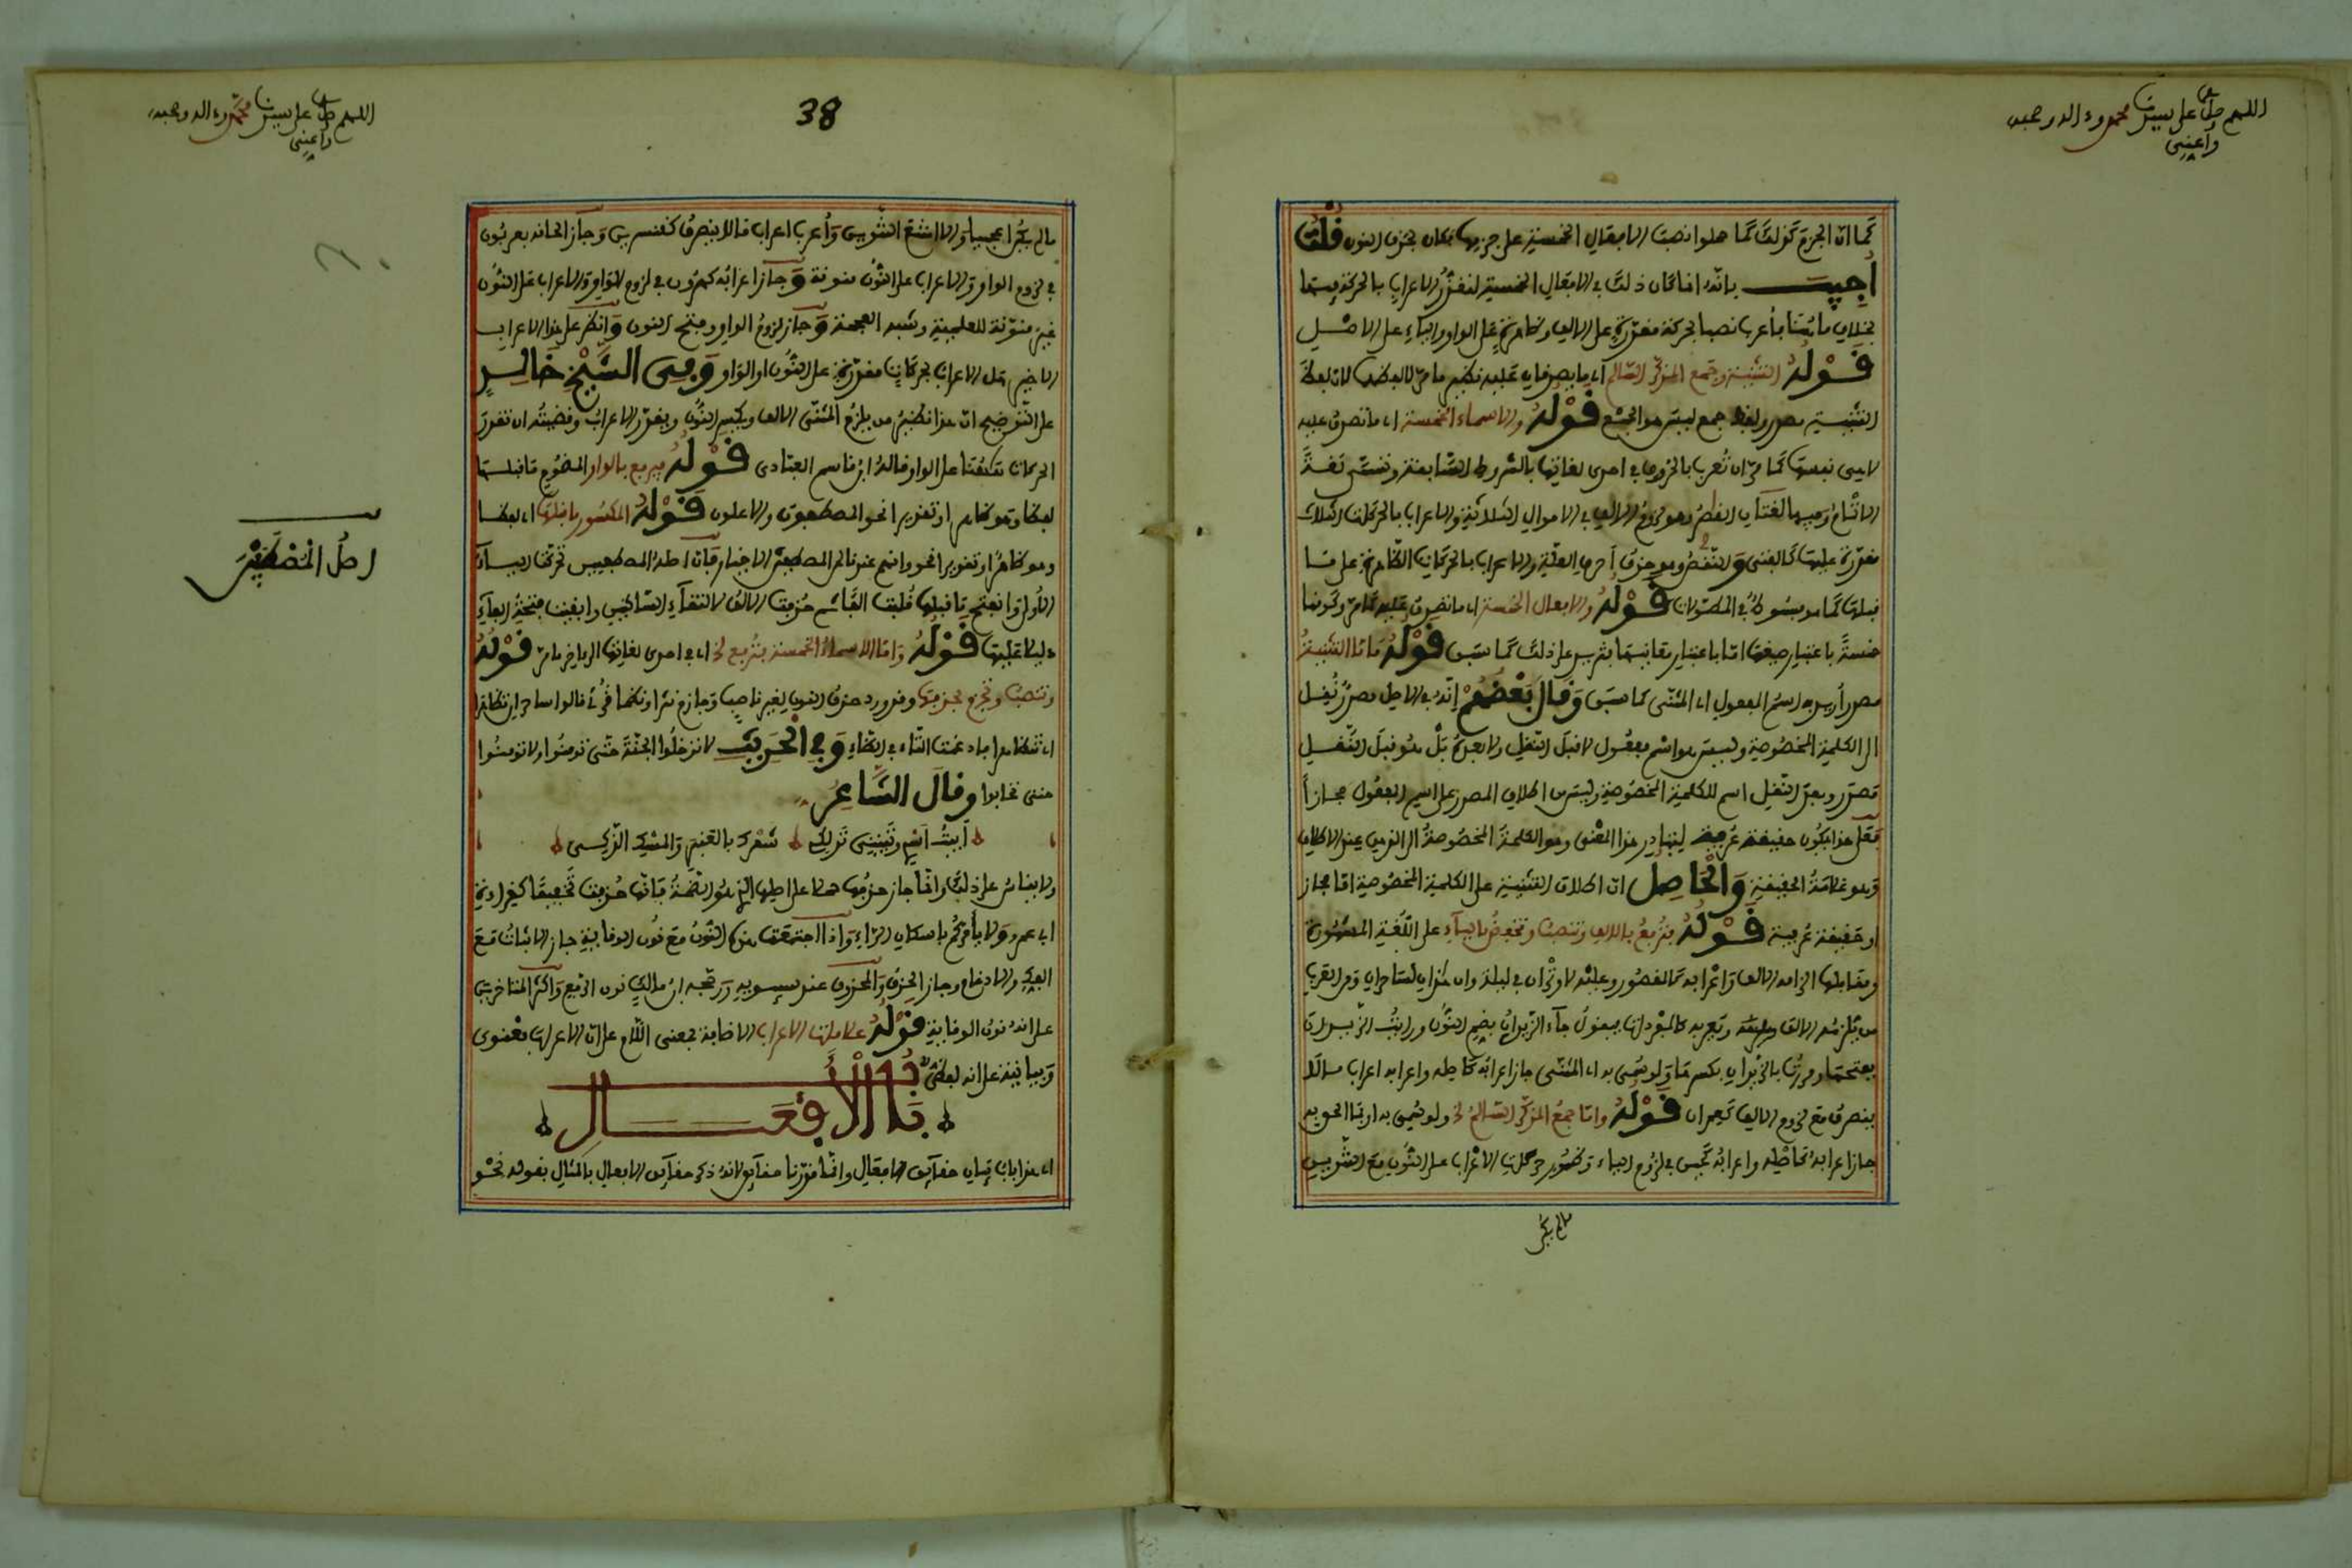 اللهم صل على سيدنا محمد وءاله وصحبه
وأعني
كما أن الجزم كذلك كما حملوا نصب الأفعال الخمسة على جزمها فكان بحذف النون قلت
أجيب بأنه إنما كان ذلك في الأفعال الخمسة لتعذر الإعراب بالحركة فيها
بخلاف ما هنا فأعرب نصبا بحركة مقدرة على الألف وظاهرة على الواو والياء على الأصل
قوله التثنية وجمع المذكر السالم أي ما يصدقان عليه نظير ما مر لا لفظهما لأن لفظ
التثنية مصدر ولفظ جمع ليس هو الجمع قوله والأسماء الخمسة أي ما تصدق عليه
لا هي نفسها كما مر أن تعرب بالحروف في إحدى لغاتها بالشروط السابقة وتسمى لغة
الإتمام وفيها لغتان القصر وهو لزوم الألف في الأحوال الثلاثة والإعراب بالحركات الثلاث
مقدرة عليها كالفتى والنقص وهو حذف أحرف العلة والإعراب بالحركات الظاهرة على ما
قبلها كما هو مبسوط في المطولات قوله والأفعال الخمسة أي ما تصدق عليه كما مر وكونها
خمسة باعتبار صيغها أما باعتبار معانيها فتزيد على ذلك كما سبق قوله فأما التثنية
مصدر أريد به اسم المفعول أي المثنى كما سبق وقال بعضهم إنه في الأصل مصدر نقل
إلى الكلمة المخصوصة وليس هو اسم مفعول لا قبل النقل ولا بعده بل هو قبل النقل
مصدر وبعد النقل اسم للكلمة المخصوصة وليس من إطلاق المصدر على اسم المفعول مجازا
فعلى هذا يكون حقيقة عرفية ليتبادر هذا المعنى وهو الكلمة المخصوصة إلى الذهن عند الإطلاق
وهو علامة الحقيقة والحاصل أن إطلاق التثنية على الكلمة المخصوصة إما مجاز
أو حقيقة عرفية قوله فترفع بالألف وتنصب وتخفض بالياء على اللغة المشهورة
ومقابلها إلزامه الألف وإعرابه كالمقصور وعليه لا وتران في ليلة وإن هذان لساحران ومن العرب
من يلزمه الألف ويعربه كالمفرد فيقول جاء الزيدان بضم النون ورأيت الزيدان
بفتحها ومررت بالزيدان بكسرها ولو سمي به أي المثنى جاز إعرابه كأصله وإعرابه إعراب ما لا
ينصرف مع لزوم الألف كعمران قوله وأما جمع المذكر السالم الخ ولو سمي به أو بما ألحق به
جاز إعرابه كأصله وإعرابه كحين في لزوم الياء وظهور حركات الإعراب على النون مع التنوين
ما لم يكن
38
اللهم صل على سيدنا محمد وءاله وصحبه
وأعني
ما لم يكن أعجميا وإلا امتنع التنوين وأعرب إعراب ما لا ينصرف كقنسرين وجاز إلحاقه بعربون
في لزوم الواو والإعراب على النون منونة وجاز إعرابه كهرون في لزوم الواو والإعراب على النون
غير منونة للعلمية وشبه العجمة وجاز لزوم الواو وفتح النون وانظر على هذا الإعراب
الأخير هل الإعراب بحركات مقدرة على النون أو الواو وفي الشيخ خالد
على التوضيح أن هذا نظير من يلزم المثنى الألف ويكسر النون ويقدر الإعراب وقضيته أن تقدر
الحركات هنا على الواو قاله ابن قاسم العبادي قوله فيرفع بالواو المضموم ما قبلها
لفظا وهو ظاهر أو تقدير نحو المصطفون والأعلون قوله المكسور ما قبلها أي لفظا
وهو ظاهر أو تقدير نحو وإنهم عندنا لمن المصطفين الأخيار فإن أصله المصطفيين تحركت الياء
الأولى وانفتح ما قبلها قلبت ألفا ثم حذفت الألف لالتقاء الساكنين وأبقيت فتحة الفاء
دليلا عليها قوله وأما الأسماء الخمسة فترفع الخ أي في إحدى لغاتها إلى آخر ما مر قوله
وتنصب وتجزم بحذفها وقد ورد حذف النون لغير ناصب وجازم نثرا ونظما قرئ قالوا ساحران تظاهرا
أي تتظاهران فأدغمت التاء في الظاء وفي الحديث لا تدخلوا الجنة حتى تومنوا ولا تومنوا
حتى تحابوا وقال الشاعر
أبيت أسري وتبيتي تدلكي شعرك بالعنبر والمسك الزكي
ولا يقاس على ذلك وإنما جاز حذفها حملا على أصلها الذي هو الضمة فإنها حذفت تخفيفا كقراءة
أبي عمرو ولا يأمركم بإسكان الراء وإذا اجتمعت هذه النون مع نون الوقاية جاز الإثبات مع
الفك والإدغام وجاز الحذف والمحذوف عند سيبويه ورجحه ابن مالك نون الرفع وأكثر المتأخرين
على أنه نون الوقاية قوله علامات الإعراب الإضافة بمعنى اللام على أن الإعراب معنوي
وبيانية على أنه لفظي
باب الأفعال
أي هذا باب بيان حقائق الأفعال وإنما قدرنا حقائق لأنه ذكر حقائق الأفعال بالمثال بقوله نحو
أصل المصطفين